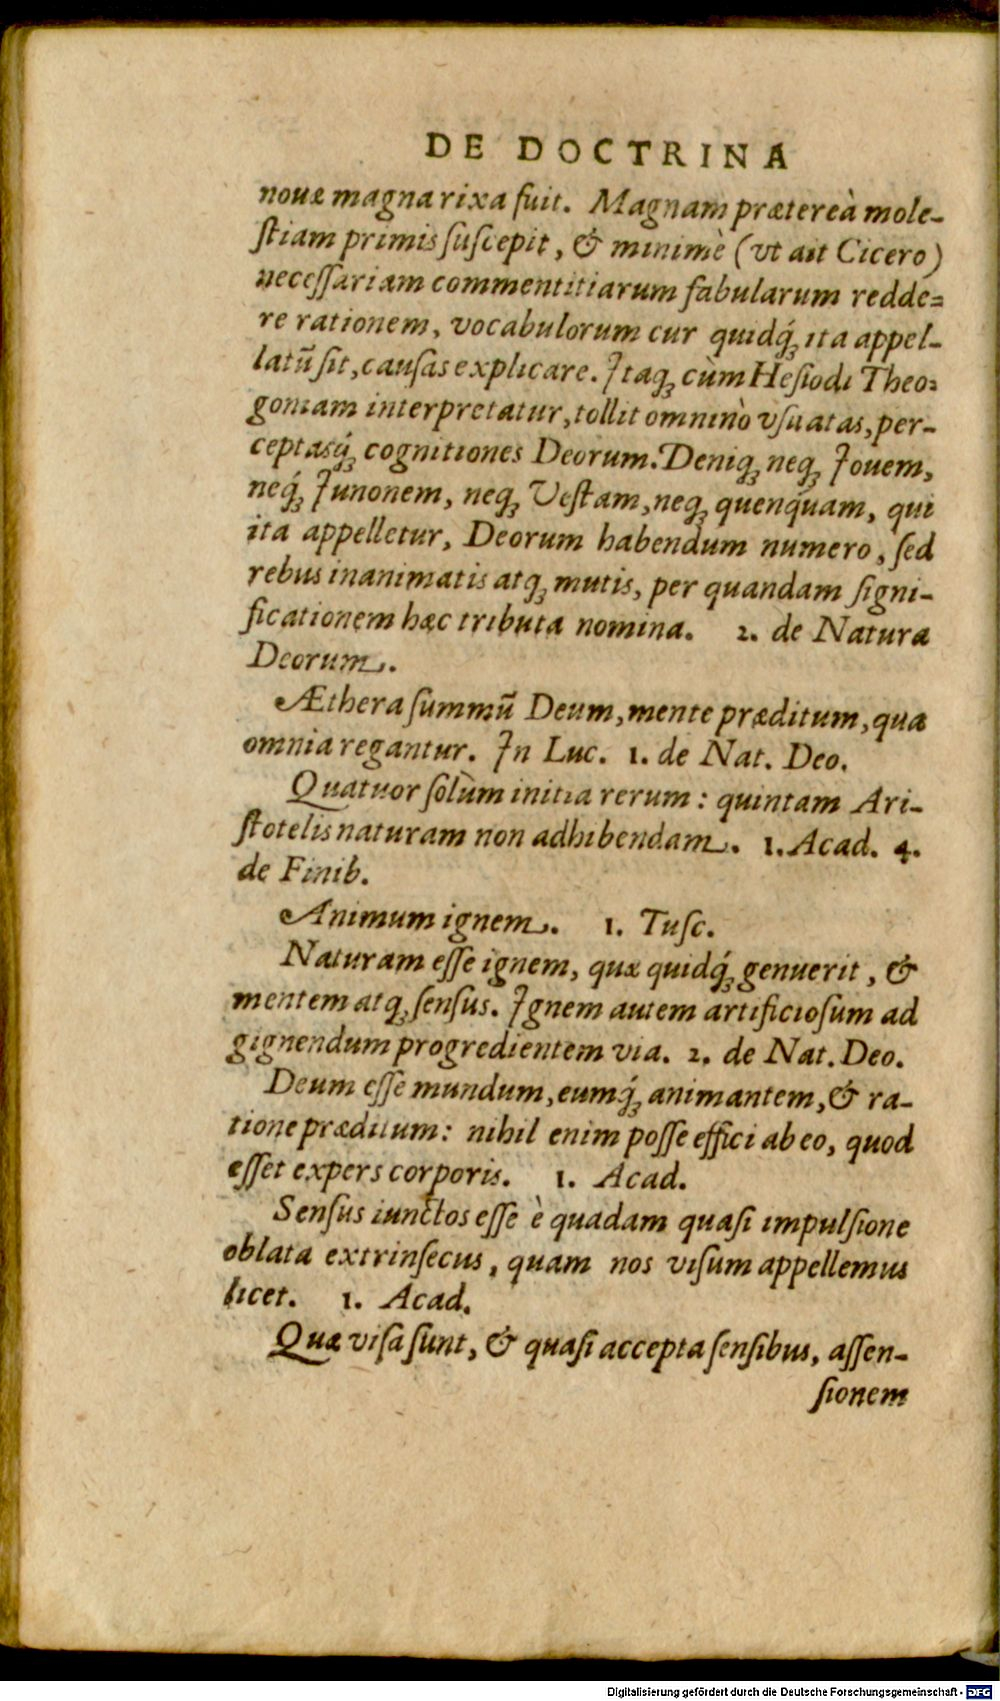 DE DOCTRINA
nouæ magna rixa fuit. Magnam prætereà mole-
ſtiam primis ſuſcepit, & minimè (vt ait Cicero)
neceſſariam commentitiarum fabularum redde=
re rationem, vocabulorum cur quidq́ꝫ ita appel-
latū ſit, cauſas explicare. Itaqꝫ cùm Heſiodi Theo=
goniam interpretatur, tollit omninò vſuatas, per-
ceptasq́ꝫ cognitiones Deorum. Deniqꝫ neqꝫ Iouem,
neq́ꝫ Iunonem, neqꝫ Veſtam, neqꝫ quenq́uam, qui
ita appelletur, Deorum habendum numero, ſed
rebus inanimatis atqꝫ mutis, per quandam ſigni-
ficationem hæc tributa nomina. 2. de Natura
Deorum.
Æthera ſummū Deum, mente præditum, qua
omnia regantur. In Luc. 1. de Nat. Deo.
Quatuor ſolùm initia rerum: quintam Ari-
ſtotelis naturam non adhibendam. 1. Acad. 4.
de Finib.
Animum ignem. 1. Tuſc.
Naturam eſſe ignem, quæ quidq́ꝫ genuerit, &
mentem atqꝫ ſenſus. Ignem autem artificioſum ad
gignendum progredientem via. 2. de Nat. Deo.
Deum eſſe mundum, eumq́ꝫ animantem, & ra-
tione præditum: nihil enim poſſe effici ab eo, quod
eſſet expers corporis. 1. Acad.
Senſus iunctos eſſe è quadam quaſi impulſione
oblata extrinſecus, quam nos viſum appellemus
licet. 1. Acad.
Quæ viſa ſunt, & quaſi accepta ſenſibus, aſſen-
ſionem
Digitalisierung gefördert durch die Deutsche Forschungsgemeinschaft - DFG